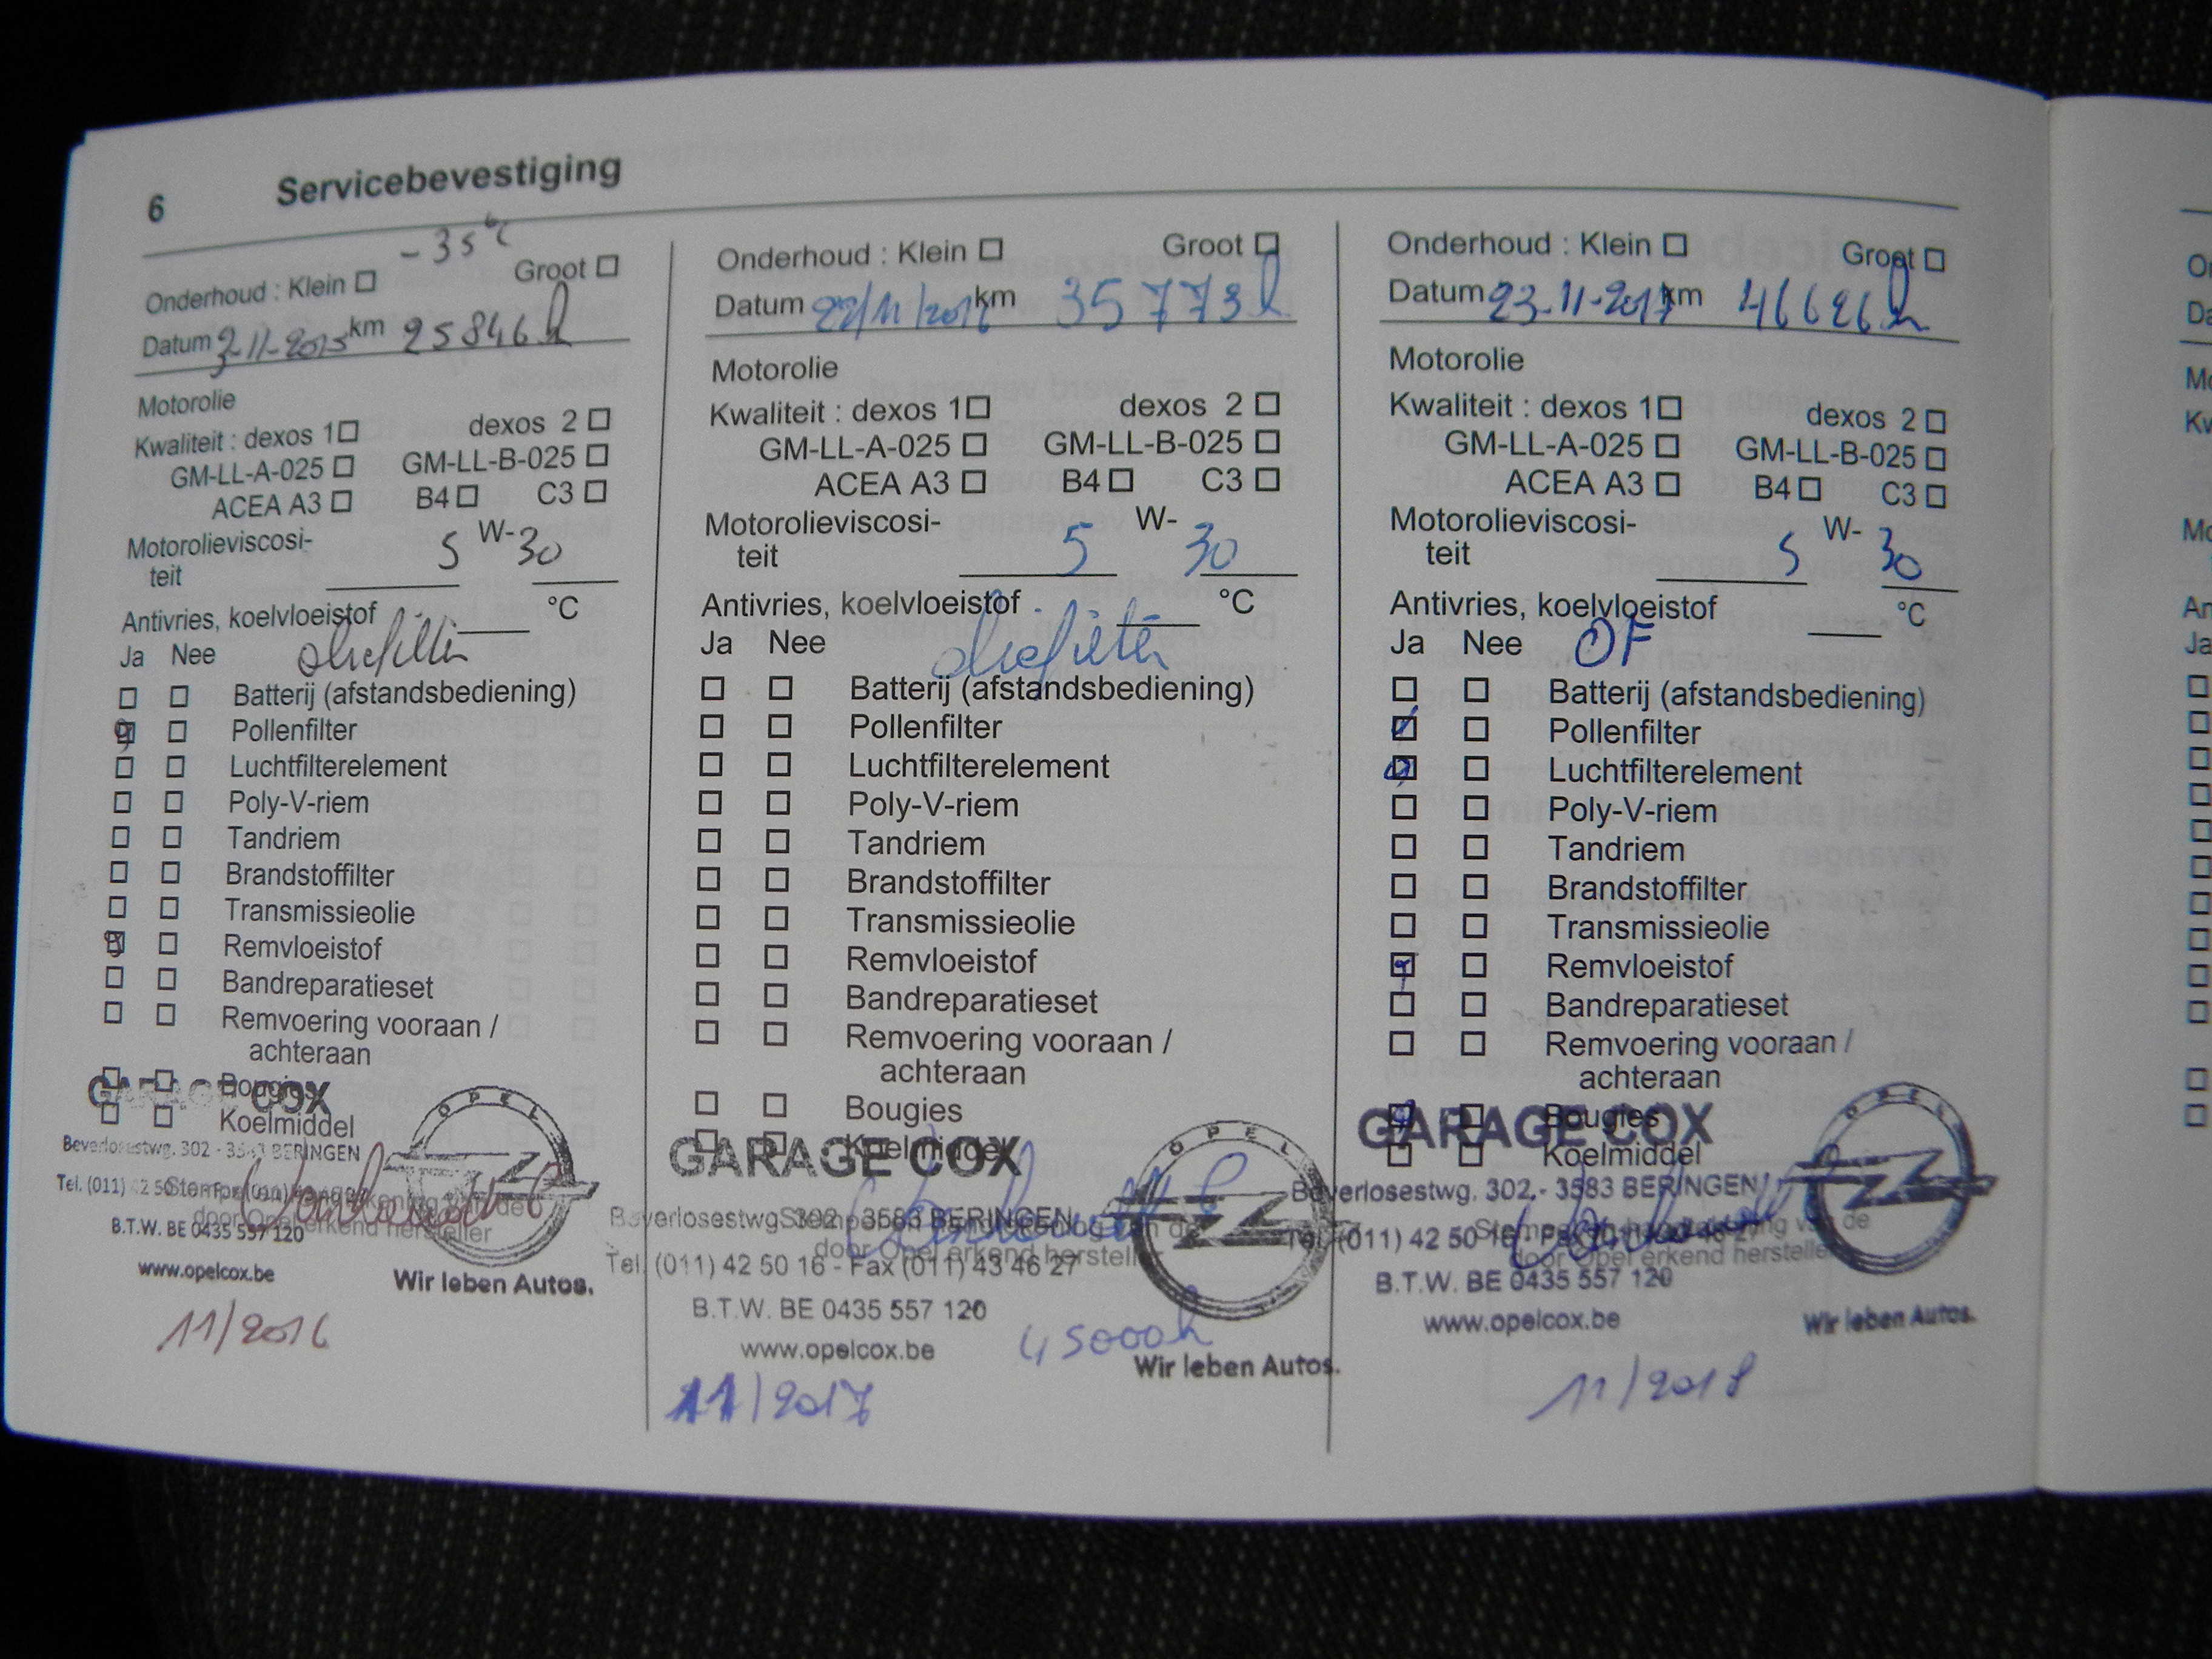 6 Servicebevestiging
-35°C
Onderhoud : Klein ☐ Groot ☐
Datum 2-11-2015 km 25846
Motorolie
Kwaliteit : dexos 1☐ dexos 2 ☐
GM-LL-A-025 ☐ GM-LL-B-025 ☐
ACEA A3 ☐ B4 ☐ C3 ☐
Motorolieviscosi-
teit 5 W- 30
Antivries, koelvloeistof °C
Ja Nee oliefilter
Batterij (afstandsbediening)
Pollenfilter
Luchtfilterelement
Poly-V-riem
Tandriem
Brandstoffilter
Transmissieolie
Remvloeistof
Bandreparatieset
Remvoering vooraan /
achteraan
Bougies
Koelmiddel
GARAGE COX
OPEL
Beverlosestwg. 302 - 3583 BERINGEN
Tel. (011) 42 50 16
door Opel erkend hersteller
B.T.W. BE 0435 557 120
www.opelcox.be
Wir leben Autos.
11/2016
Onderhoud : Klein ☐ Groot ☐
Datum 22/11/2016 km 35773
Motorolie
Kwaliteit : dexos 1☐ dexos 2 ☐
GM-LL-A-025 ☐ GM-LL-B-025 ☐
ACEA A3 ☐ B4 ☐ C3 ☐
Motorolieviscosi-
teit 5 W- 30
Antivries, koelvloeistof °C
Ja Nee oliefilter
Batterij (afstandsbediening)
Pollenfilter
Luchtfilterelement
Poly-V-riem
Tandriem
Brandstoffilter
Transmissieolie
Remvloeistof
Bandreparatieset
Remvoering vooraan /
achteraan
Bougies
Koelmiddel
GARAGE COX
OPEL
Beverlosestwg. 302 - 3583 BERINGEN
door Opel erkend hersteller
Tel. (011) 42 50 16 - Fax (011) 43 46 27
B.T.W. BE 0435 557 120
www.opelcox.be
45000
Wir leben Autos.
11/2017
Onderhoud : Klein ☐ Groot ☐
Datum 23-11-2017 km 46626
Motorolie
Kwaliteit : dexos 1☐ dexos 2 ☐
GM-LL-A-025 ☐ GM-LL-B-025 ☐
ACEA A3 ☐ B4 ☐ C3 ☐
Motorolieviscosi-
teit 5 W- 30
Antivries, koelvloeistof °C
Ja Nee OF
Batterij (afstandsbediening)
Pollenfilter
Luchtfilterelement
Poly-V-riem
Tandriem
Brandstoffilter
Transmissieolie
Remvloeistof
Bandreparatieset
Remvoering vooraan /
achteraan
Bougies
Koelmiddel
GARAGE COX
OPEL
Beverlosestwg. 302 - 3583 BERINGEN
Stempel en handtekening van de
Tel. (011) 42 50 16 - Fax (011) 43 46 27
door Opel erkend hersteller
B.T.W. BE 0435 557 120
www.opelcox.be
Wir leben Autos.
11/2018